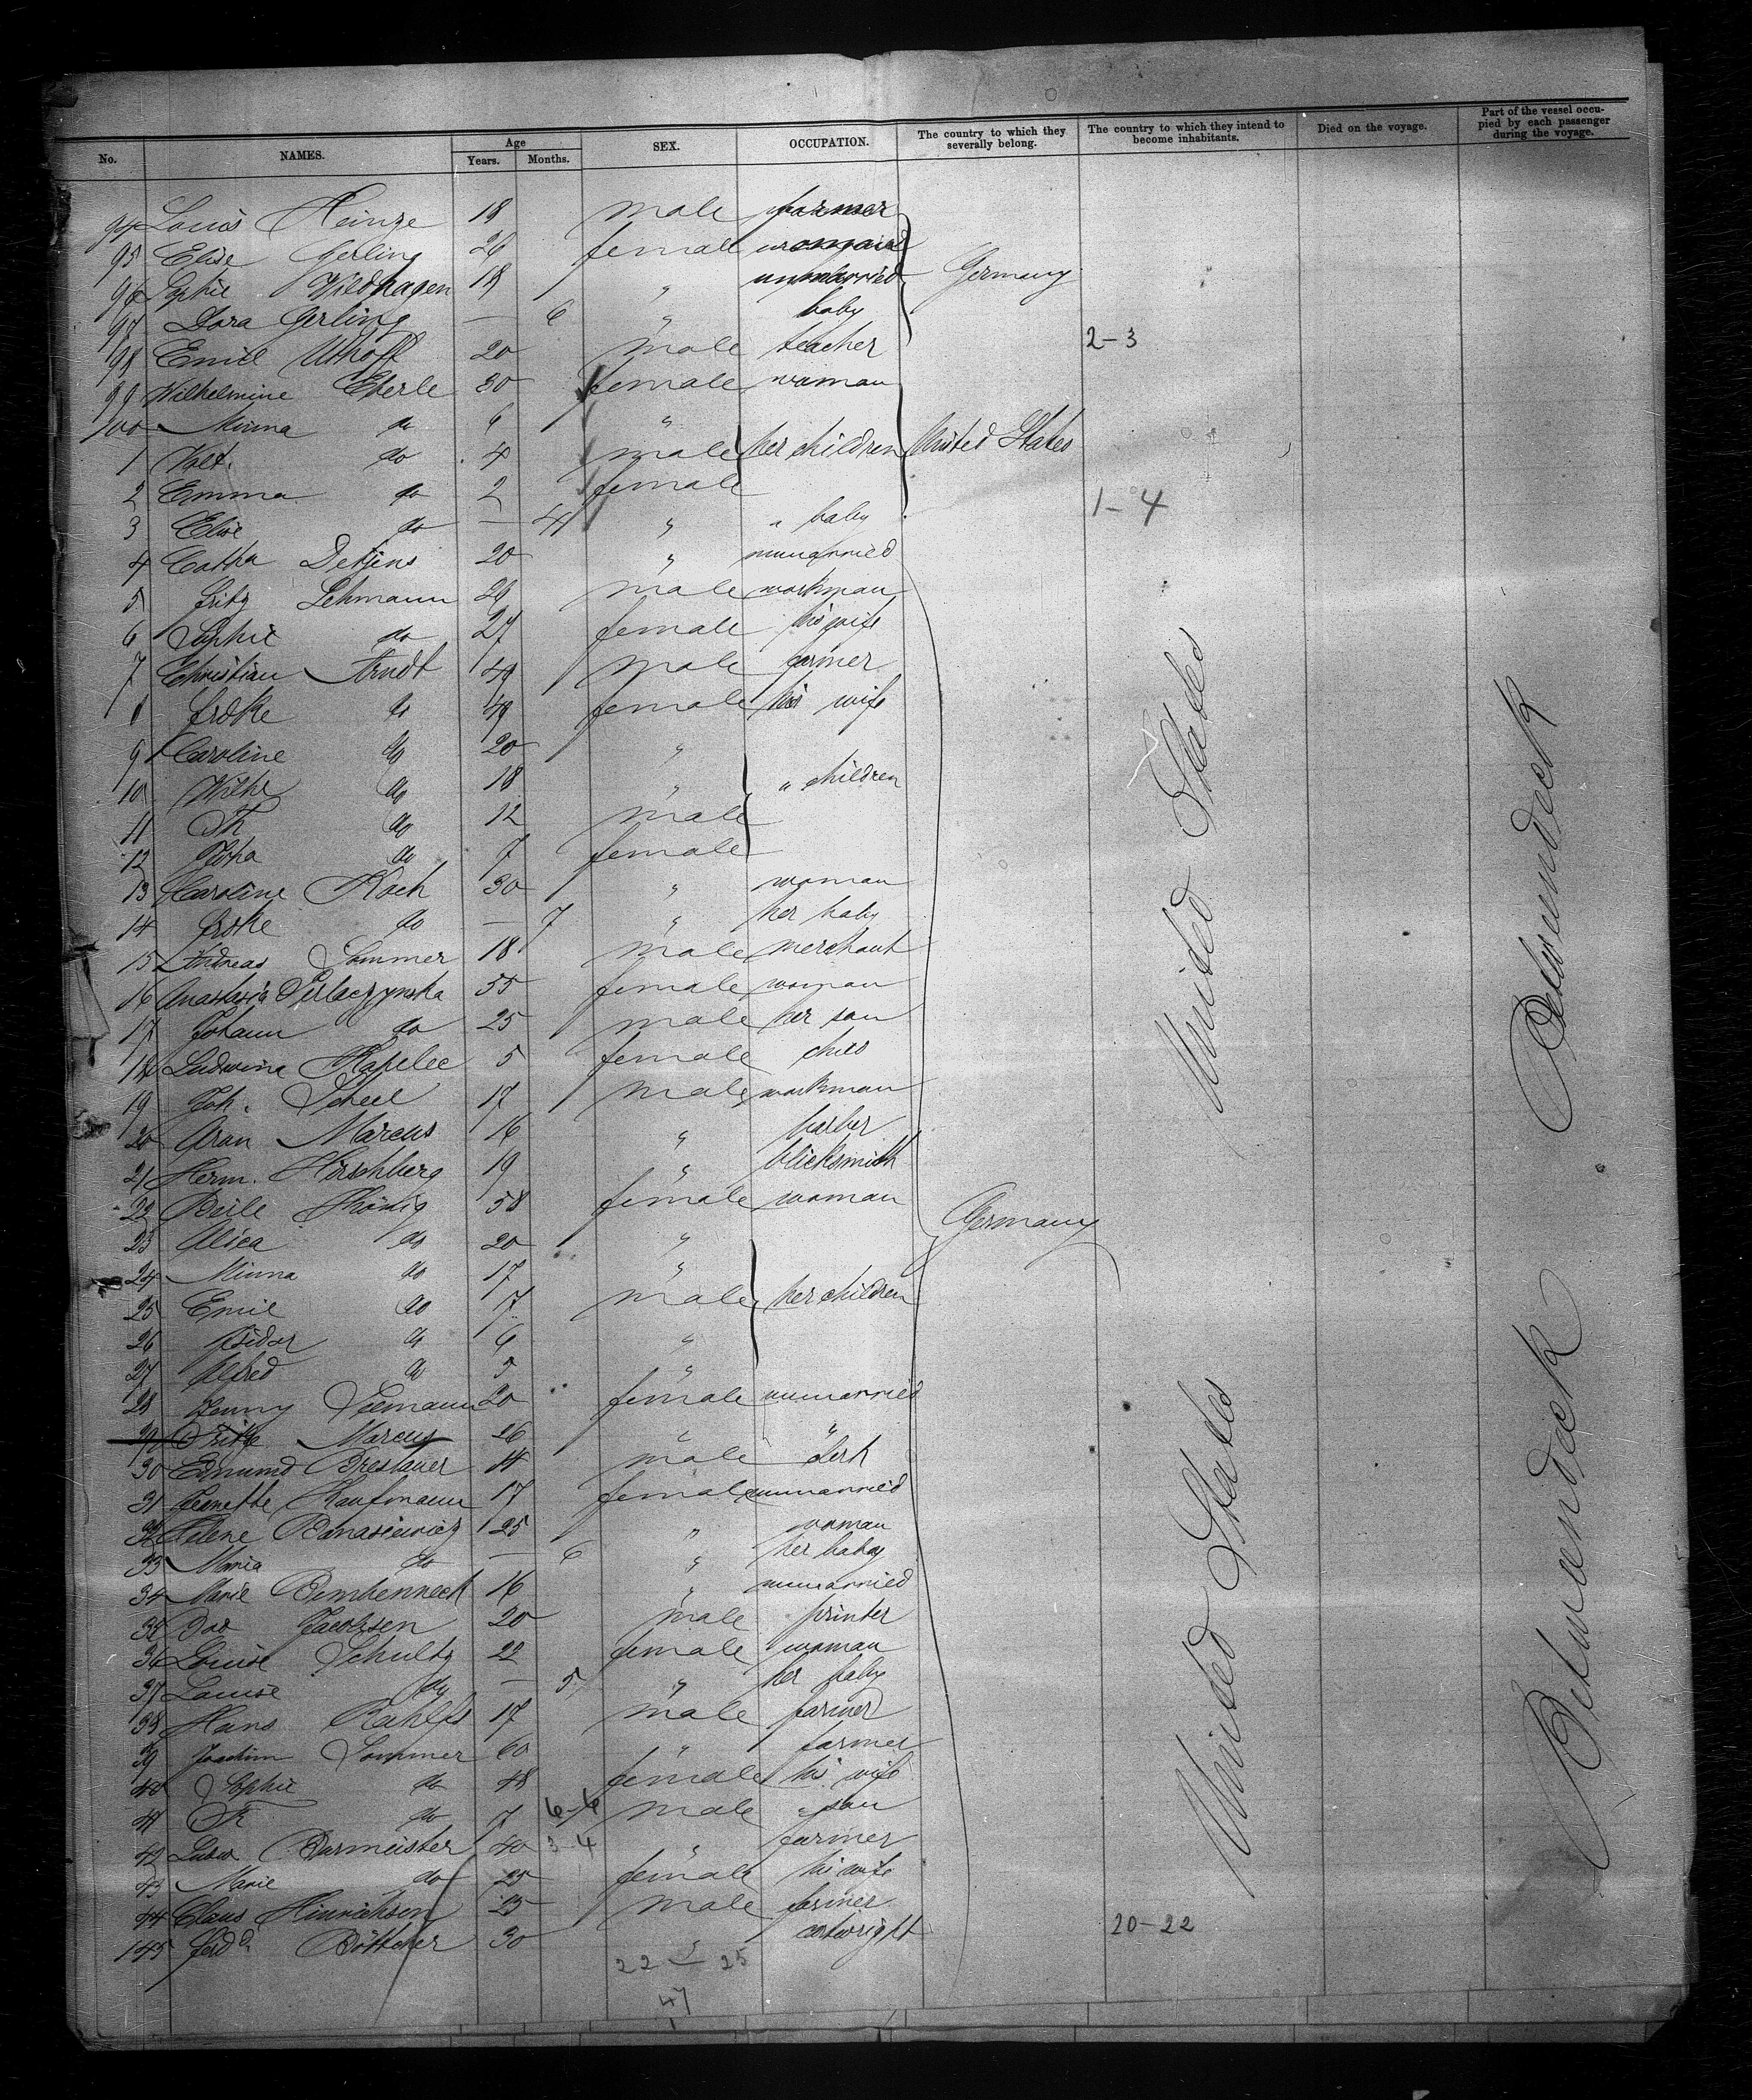 No. NAMES. Age Years. Months. SEX. OCCUPATION. The country to which they severally belong. The country to which they intend to become inhabitants. Died on the voyage. Part of the vessel occupied by each passenger during the voyage.
94 Louis Heinze 18 male farmer
95 Elise Gerling 26 female woman
96 Sophie Wildhagen 18 " unmarried Germany
97 Dora Gerling — 6 " baby
98 Emil Uthoff 20 male teacher 2-3
99 Wilhelmine Eberle 30 female woman
100 Minna do 6 "
1 Valt. do 4 male her children United States
2 Emma do 2 female
3 Elise do — 4 " " baby 1-4
4 Catha Detjens 20 " unmarried
5 Fritz Lehmann 26 male workman
6 Sophie do 27 female his wife
7 Christian Arndt 49 male farmer
8 Frdke do 49 female his wife
9 Caroline do 20 "
10 Wilhe do 18 " " children
11 Fr do 12 male
12 do 7 female
13 Caroline Koch 30 " woman
14 Frdke do — 7 " her baby
15 Andreas Sommer 18 male merchant
16 Anastasia 55 female woman
17 Johann do 25 male her son
18 Ludwina Kapelec 5 female child
19 Joh. Scheel 17 male workman
20 Aron Marcus 16 " barber
21 Herm. Hirschberg 19 " blicksmith
22 Beile König 58 female woman Germany
23 do 20 "
24 Minna do 17 "
25 Emil do 7 male her children
26 Isidor do 6 "
27 Alfred do 5 "
28 Henny Seemann 20 female unmarried
29 Marcus 26 " "
30 Edmund Breslauer 14 male clerk
31 Jeanette Kaufmann 17 female unmarried
32 Helene Banasiewicz 25 " woman
33 Maria do — 6 " her baby
34 Marie Bembenneck 16 " unmarried
35 Jacobsen 20 male printer
36 Louise Schultz 22 female woman
37 Louise do — 5 " her baby
38 Hans Rahlfs 17 male farmer
39 Joachim Sommer 60 " farmer
40 Sophie do 48 female his wife
41 Fr do 7 6-6 male " son
42 Ludw Burmeister 40 3-4 " farmer
43 Marie do 25 female his wife
44 Claus Hinrichsen 25 male farmer
145 Ferdd. Böttcher 30 " cartwright 20-22
22 – 25
47
United States
United States
Betweendeck
Betweendeck